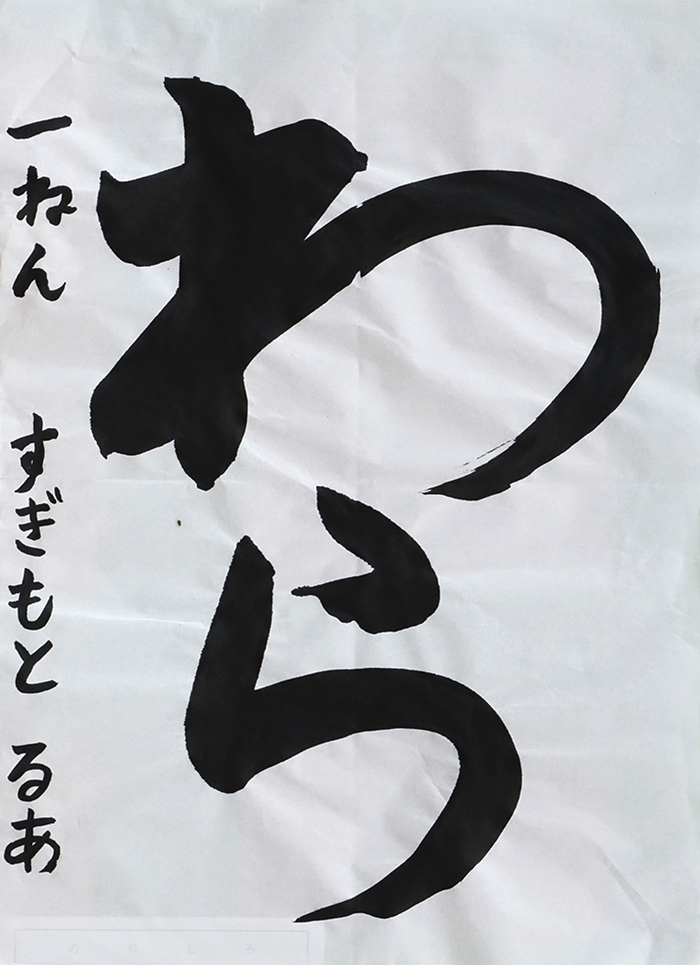 わら
一ねん すぎもと るあ